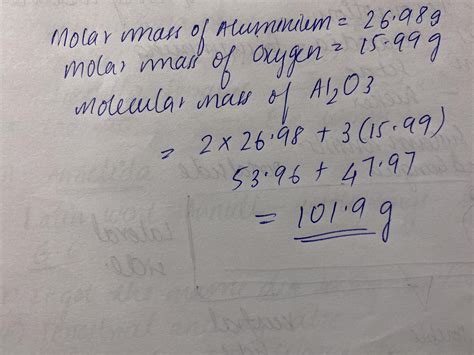 Molar mass of Aluminium = 26.98g
Molar mass of Oxygen = 15.99g
Molecular mass of Al2O3
= 2 x 26.98 + 3(15.99)
53.96 + 47.97
= 101.9 g